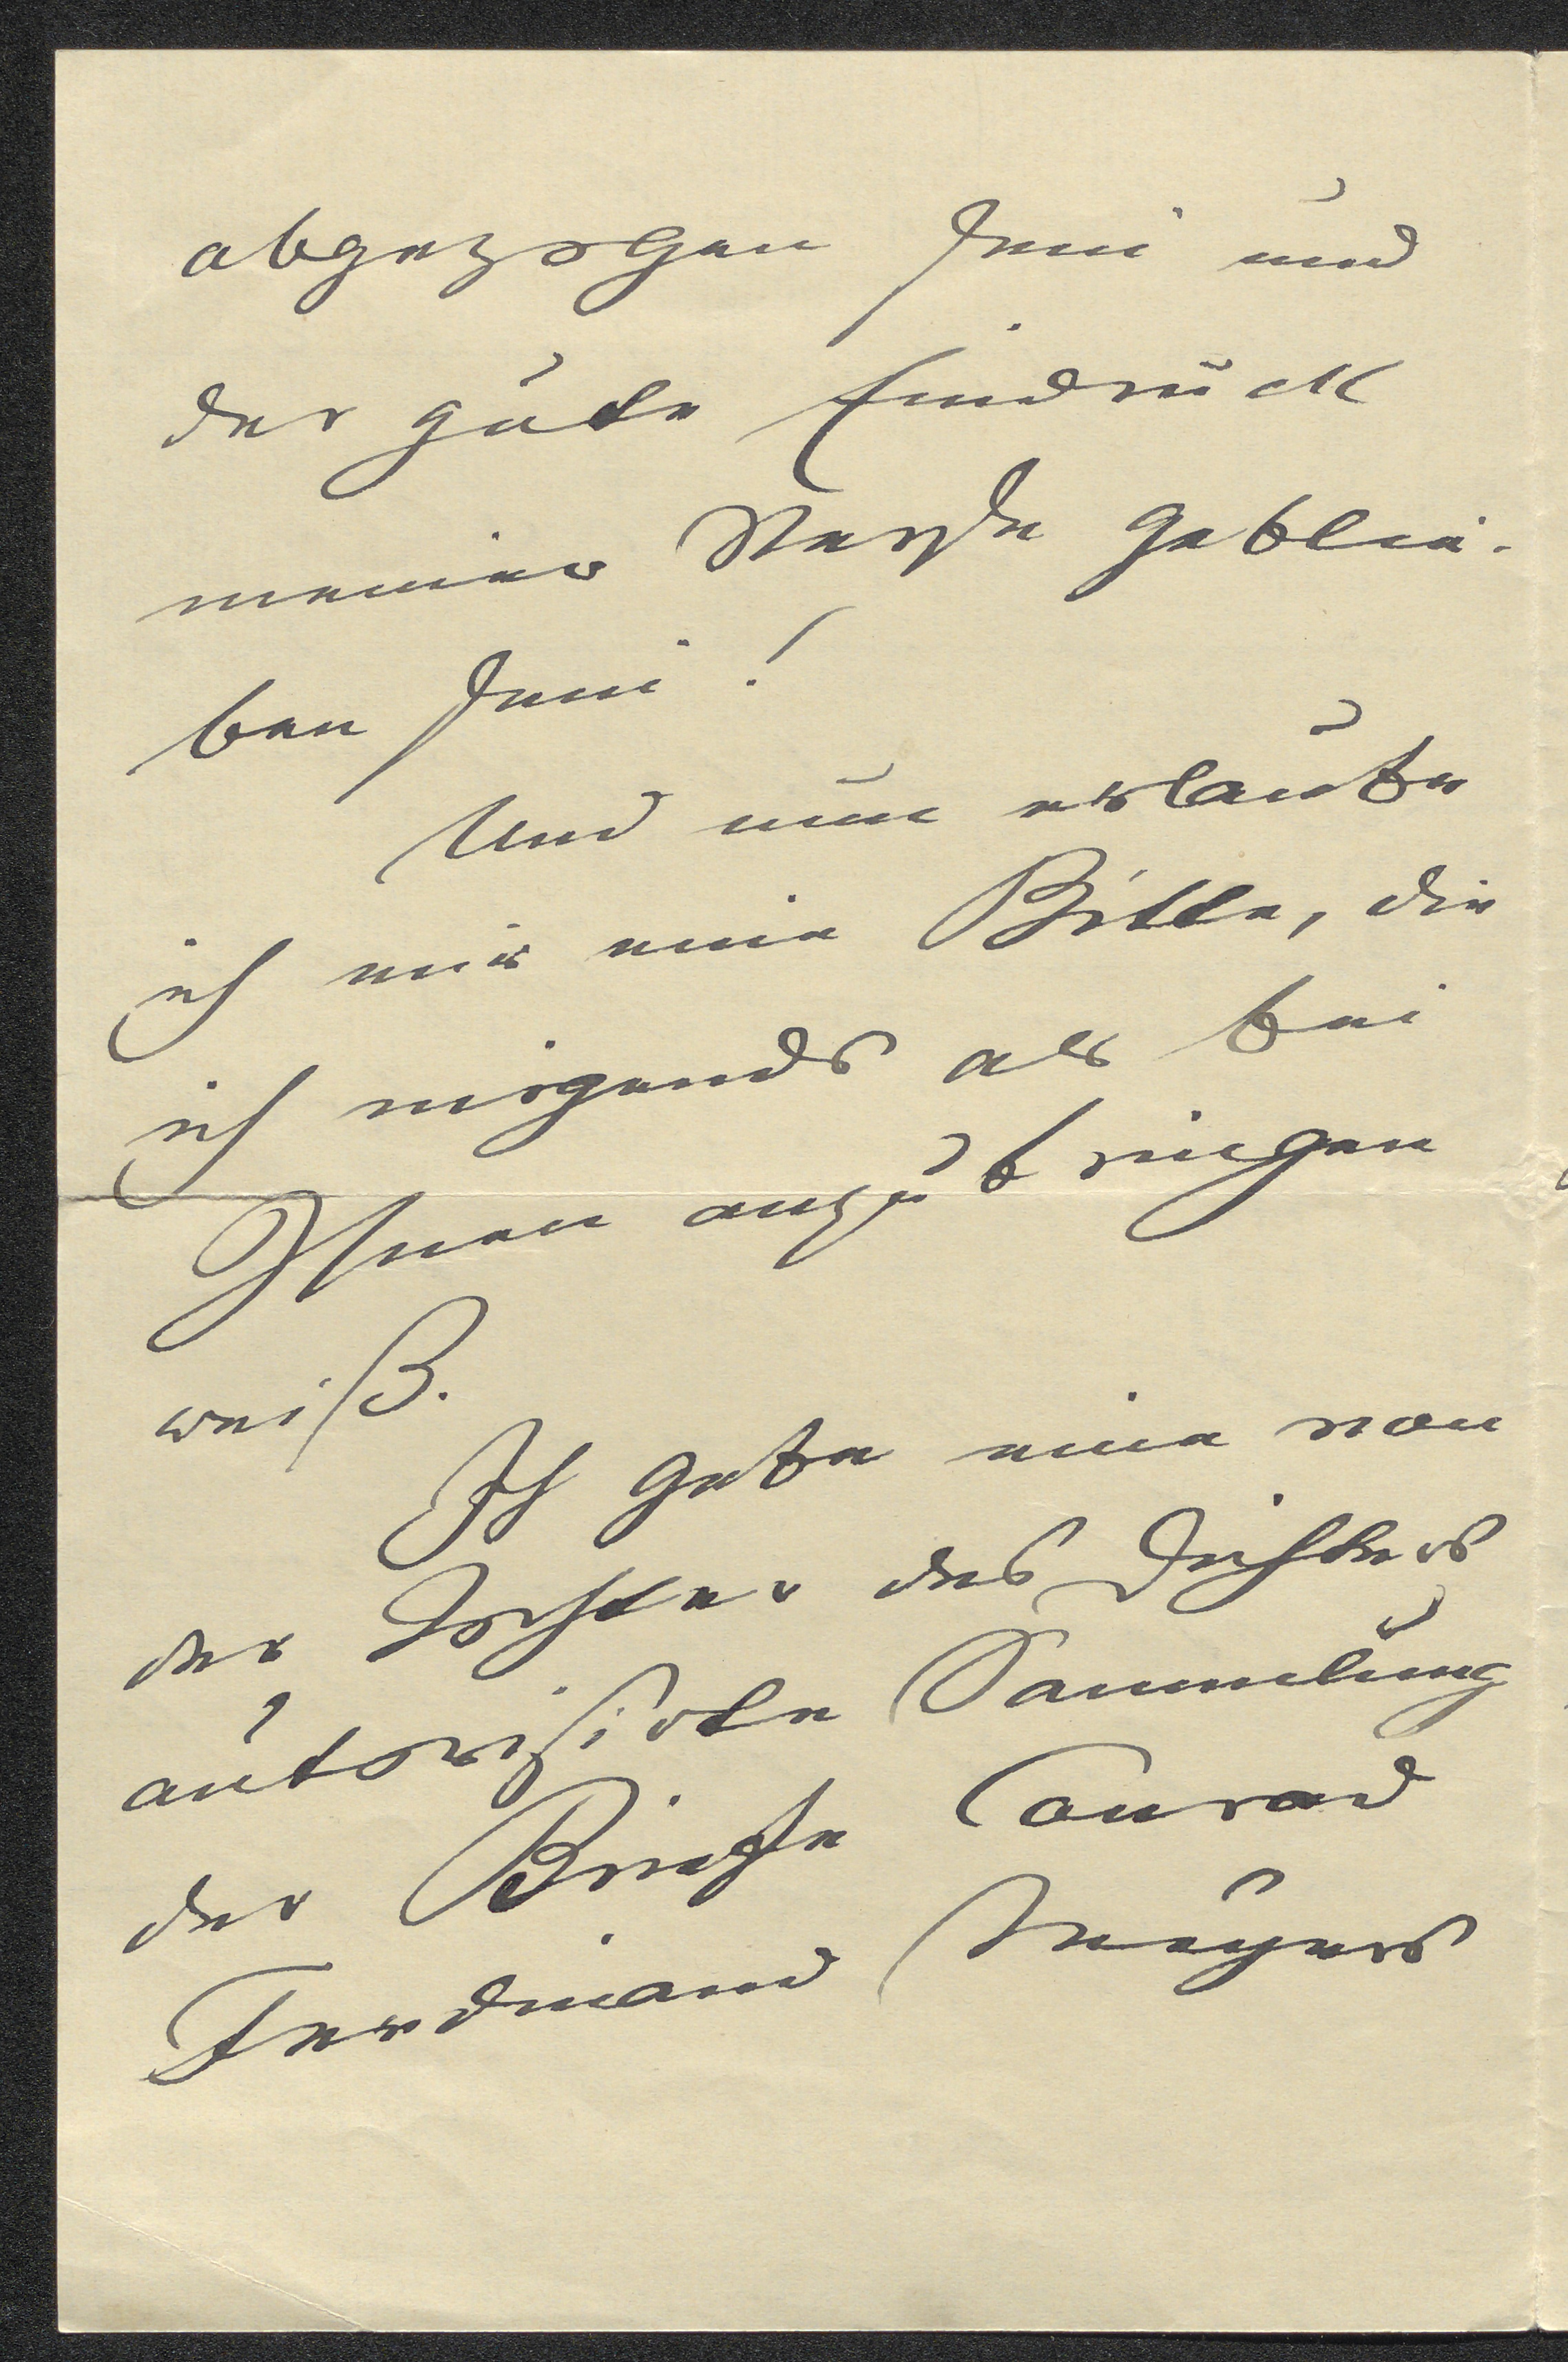 abgezogen sein und
der gute Eindruck
meiner Verse geblie-
ben sein!
Und nun erlaube
ich mir eine Bitte, die
ich nirgends als bei
Ihnen anzubringen
weiß.
Ich gebe eine von
der Tochter des Dichters
autorisirte Sammlung
der Briefe Conrad
Ferdinand Meyers